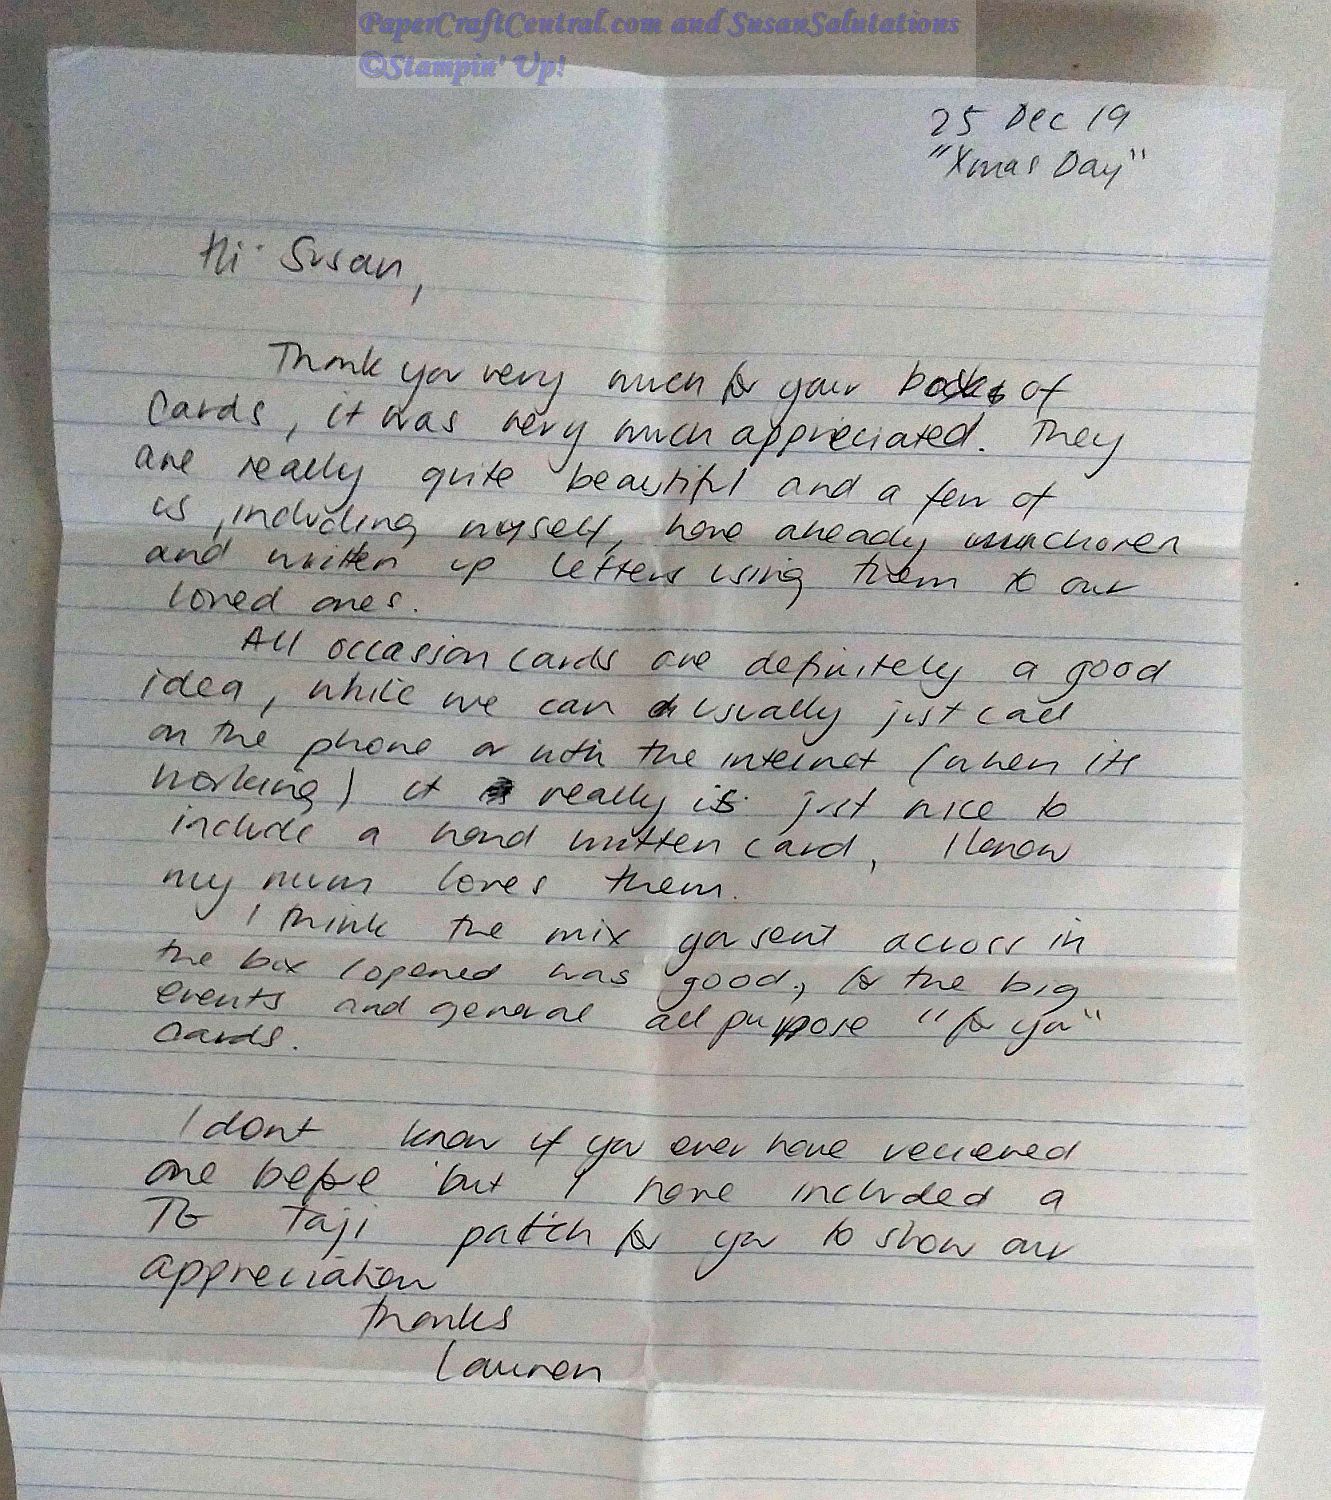 PaperCraftCentral.com and SusanSalutations
©Stampin' Up!
25 Dec 19
"Xmas Day"
Hi Susan,
Thank you very much for your box of
cards, it was very much appreciated. They
are really quite beautiful and a few of
us, including myself, have already chosen
and written up letters using them to our
loved ones.
All occasion cards are definitely a good
idea, while we can usually just call
on the phone or with the internet (when its
working) it really is just nice to
include a hand written card, I know
my mum loves them.
I think the mix you sent across in
the box I opened was good, for the big
events and general all purpose "for you"
cards.
I dont know if you ever have recieved
one before but I have included a
TG Taji patch for you to show our
appreciation
Thanks
Lauren